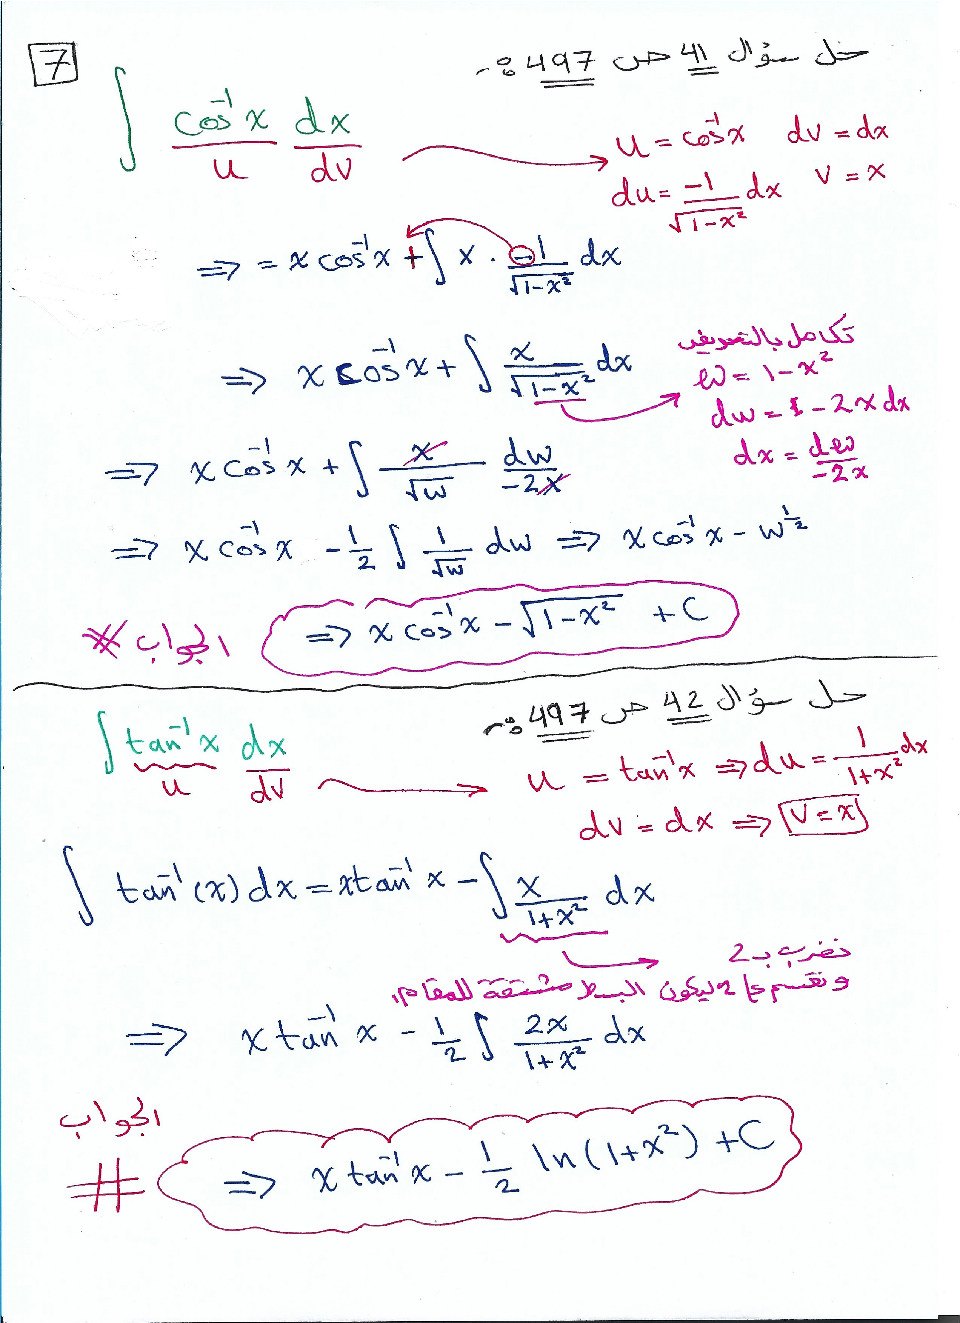 7
حل سؤال 41 ص 497 :-
∫ cos⁻¹x dx
u dv
u = cos⁻¹x dv = dx
du = -1/√(1-x²) dx v = x
⇒ = x cos⁻¹x + ∫ x · -1/√(1-x²) dx
⇒ x cos⁻¹x + ∫ x/√(1-x²) dx
تكامل بالتعويض
w = 1-x²
dw = -2x dx
dx = dw/-2x
⇒ x cos⁻¹x + ∫ x/√w dw/-2x
⇒ x cos⁻¹x - 1/2 ∫ 1/√w dw ⇒ x cos⁻¹x - w^(1/2)
⇒ x cos⁻¹x - √(1-x²) + C
الجواب #
حل سؤال 42 ص 497 :-
∫ tan⁻¹x dx
u dv
u = tan⁻¹x ⇒ du = 1/(1+x²) dx
dv = dx ⇒ v = x
∫ tan⁻¹(x) dx = x tan⁻¹x - ∫ x/(1+x²) dx
نضرب بـ 2
ونقسم ع 2 ليكون البسط مشتقة للمقام
⇒ x tan⁻¹x - 1/2 ∫ 2x/(1+x²) dx
الجواب
#
⇒ x tan⁻¹x - 1/2 ln(1+x²) + C